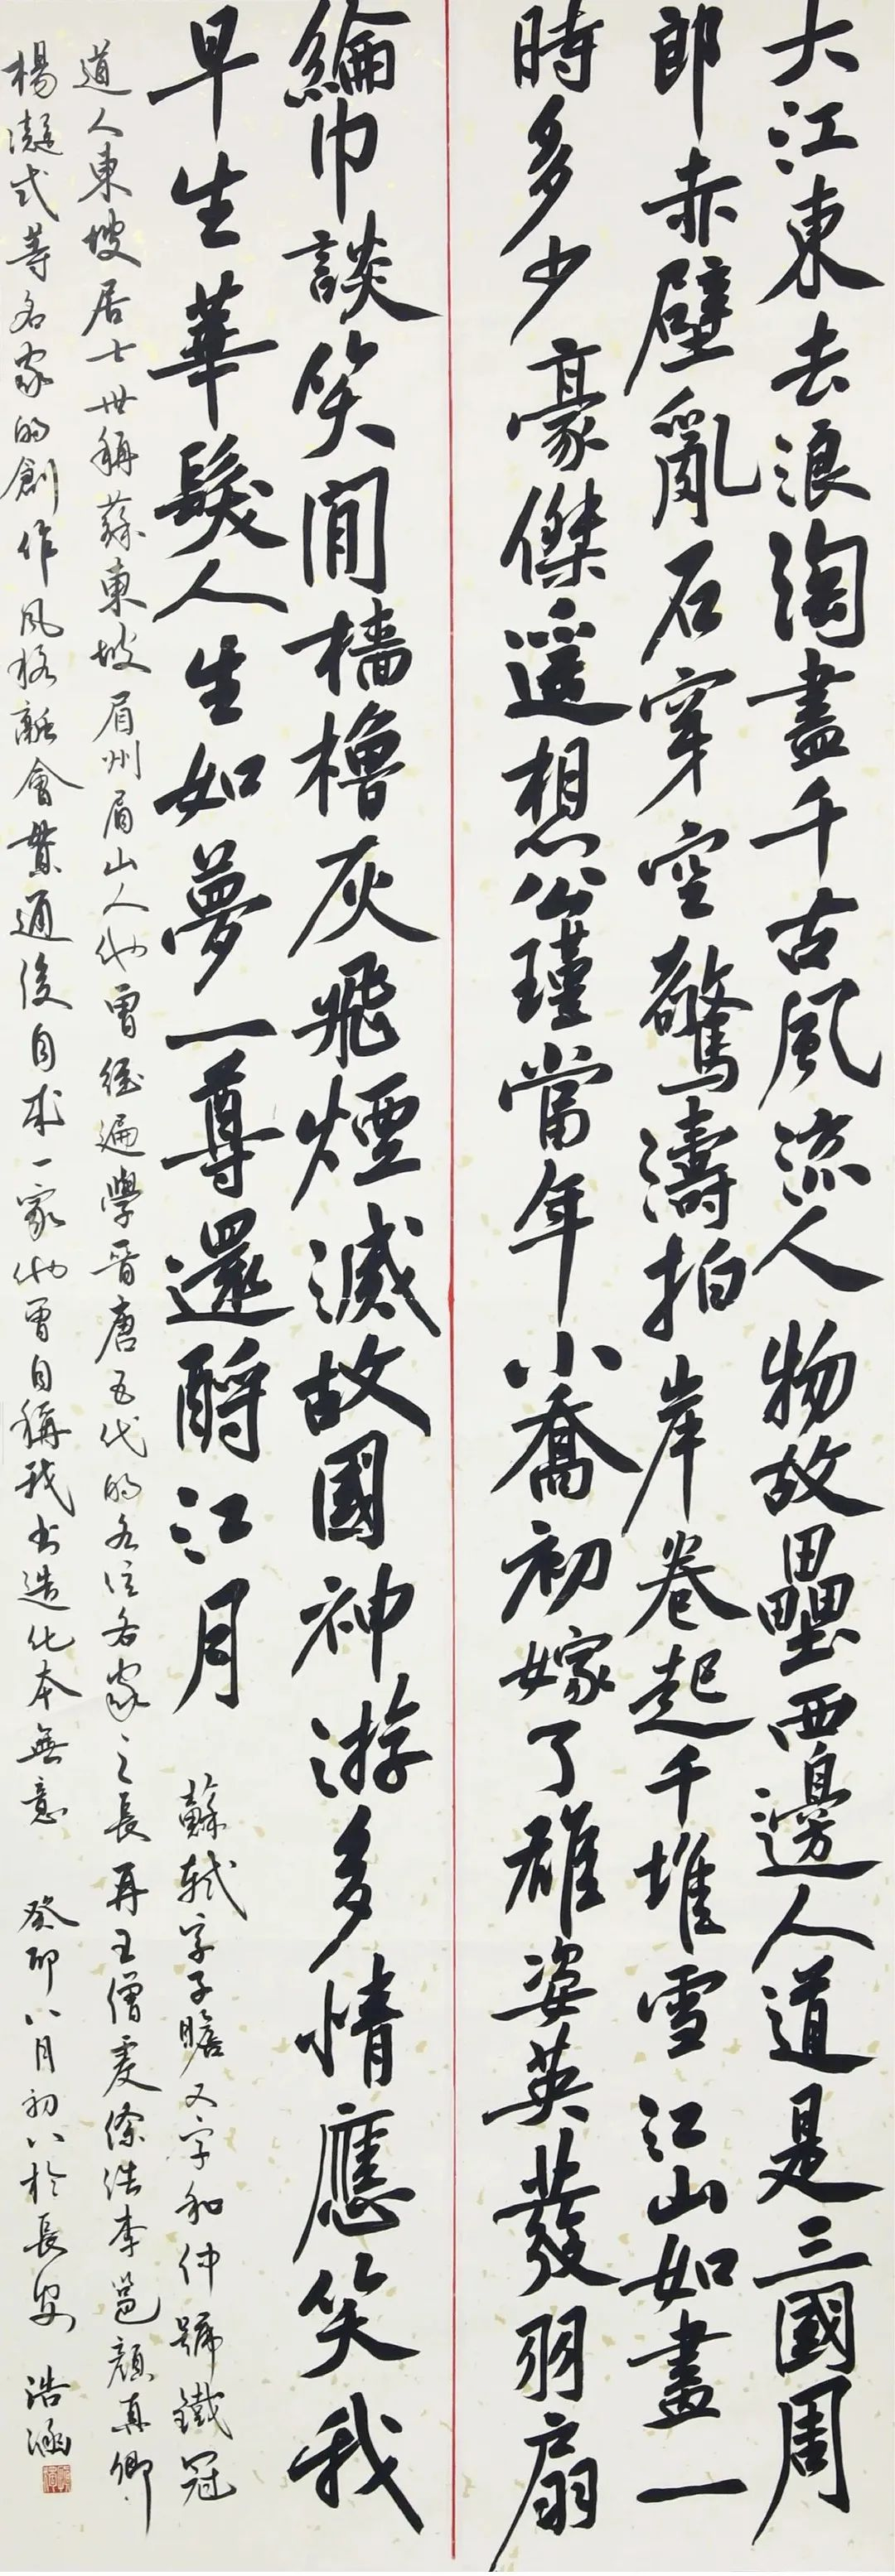 大江東去浪淘盡千古風流人物故壘西邊人道是三國周
郎赤壁亂石穿空驚濤拍岸卷起千堆雪江山如畫一
時多少豪傑遥想公瑾當年小喬初嫁了雄姿英發羽扇
綸巾談笑間檣櫓灰飛煙滅故國神游多情應笑我
早生華髮人生如夢一尊還酹江月
蘇軾字子瞻又字和仲號鐵冠
道人東坡居士世稱蘇東坡眉州眉山人他曾經遍學晋唐五代的各位名家之長再王僧虔徐浩李邕顏真卿
楊凝式等名家的創作風格融會貫通後自成一家他曾自稱我書造化本無意
癸卯八月初八於長安 浩涵